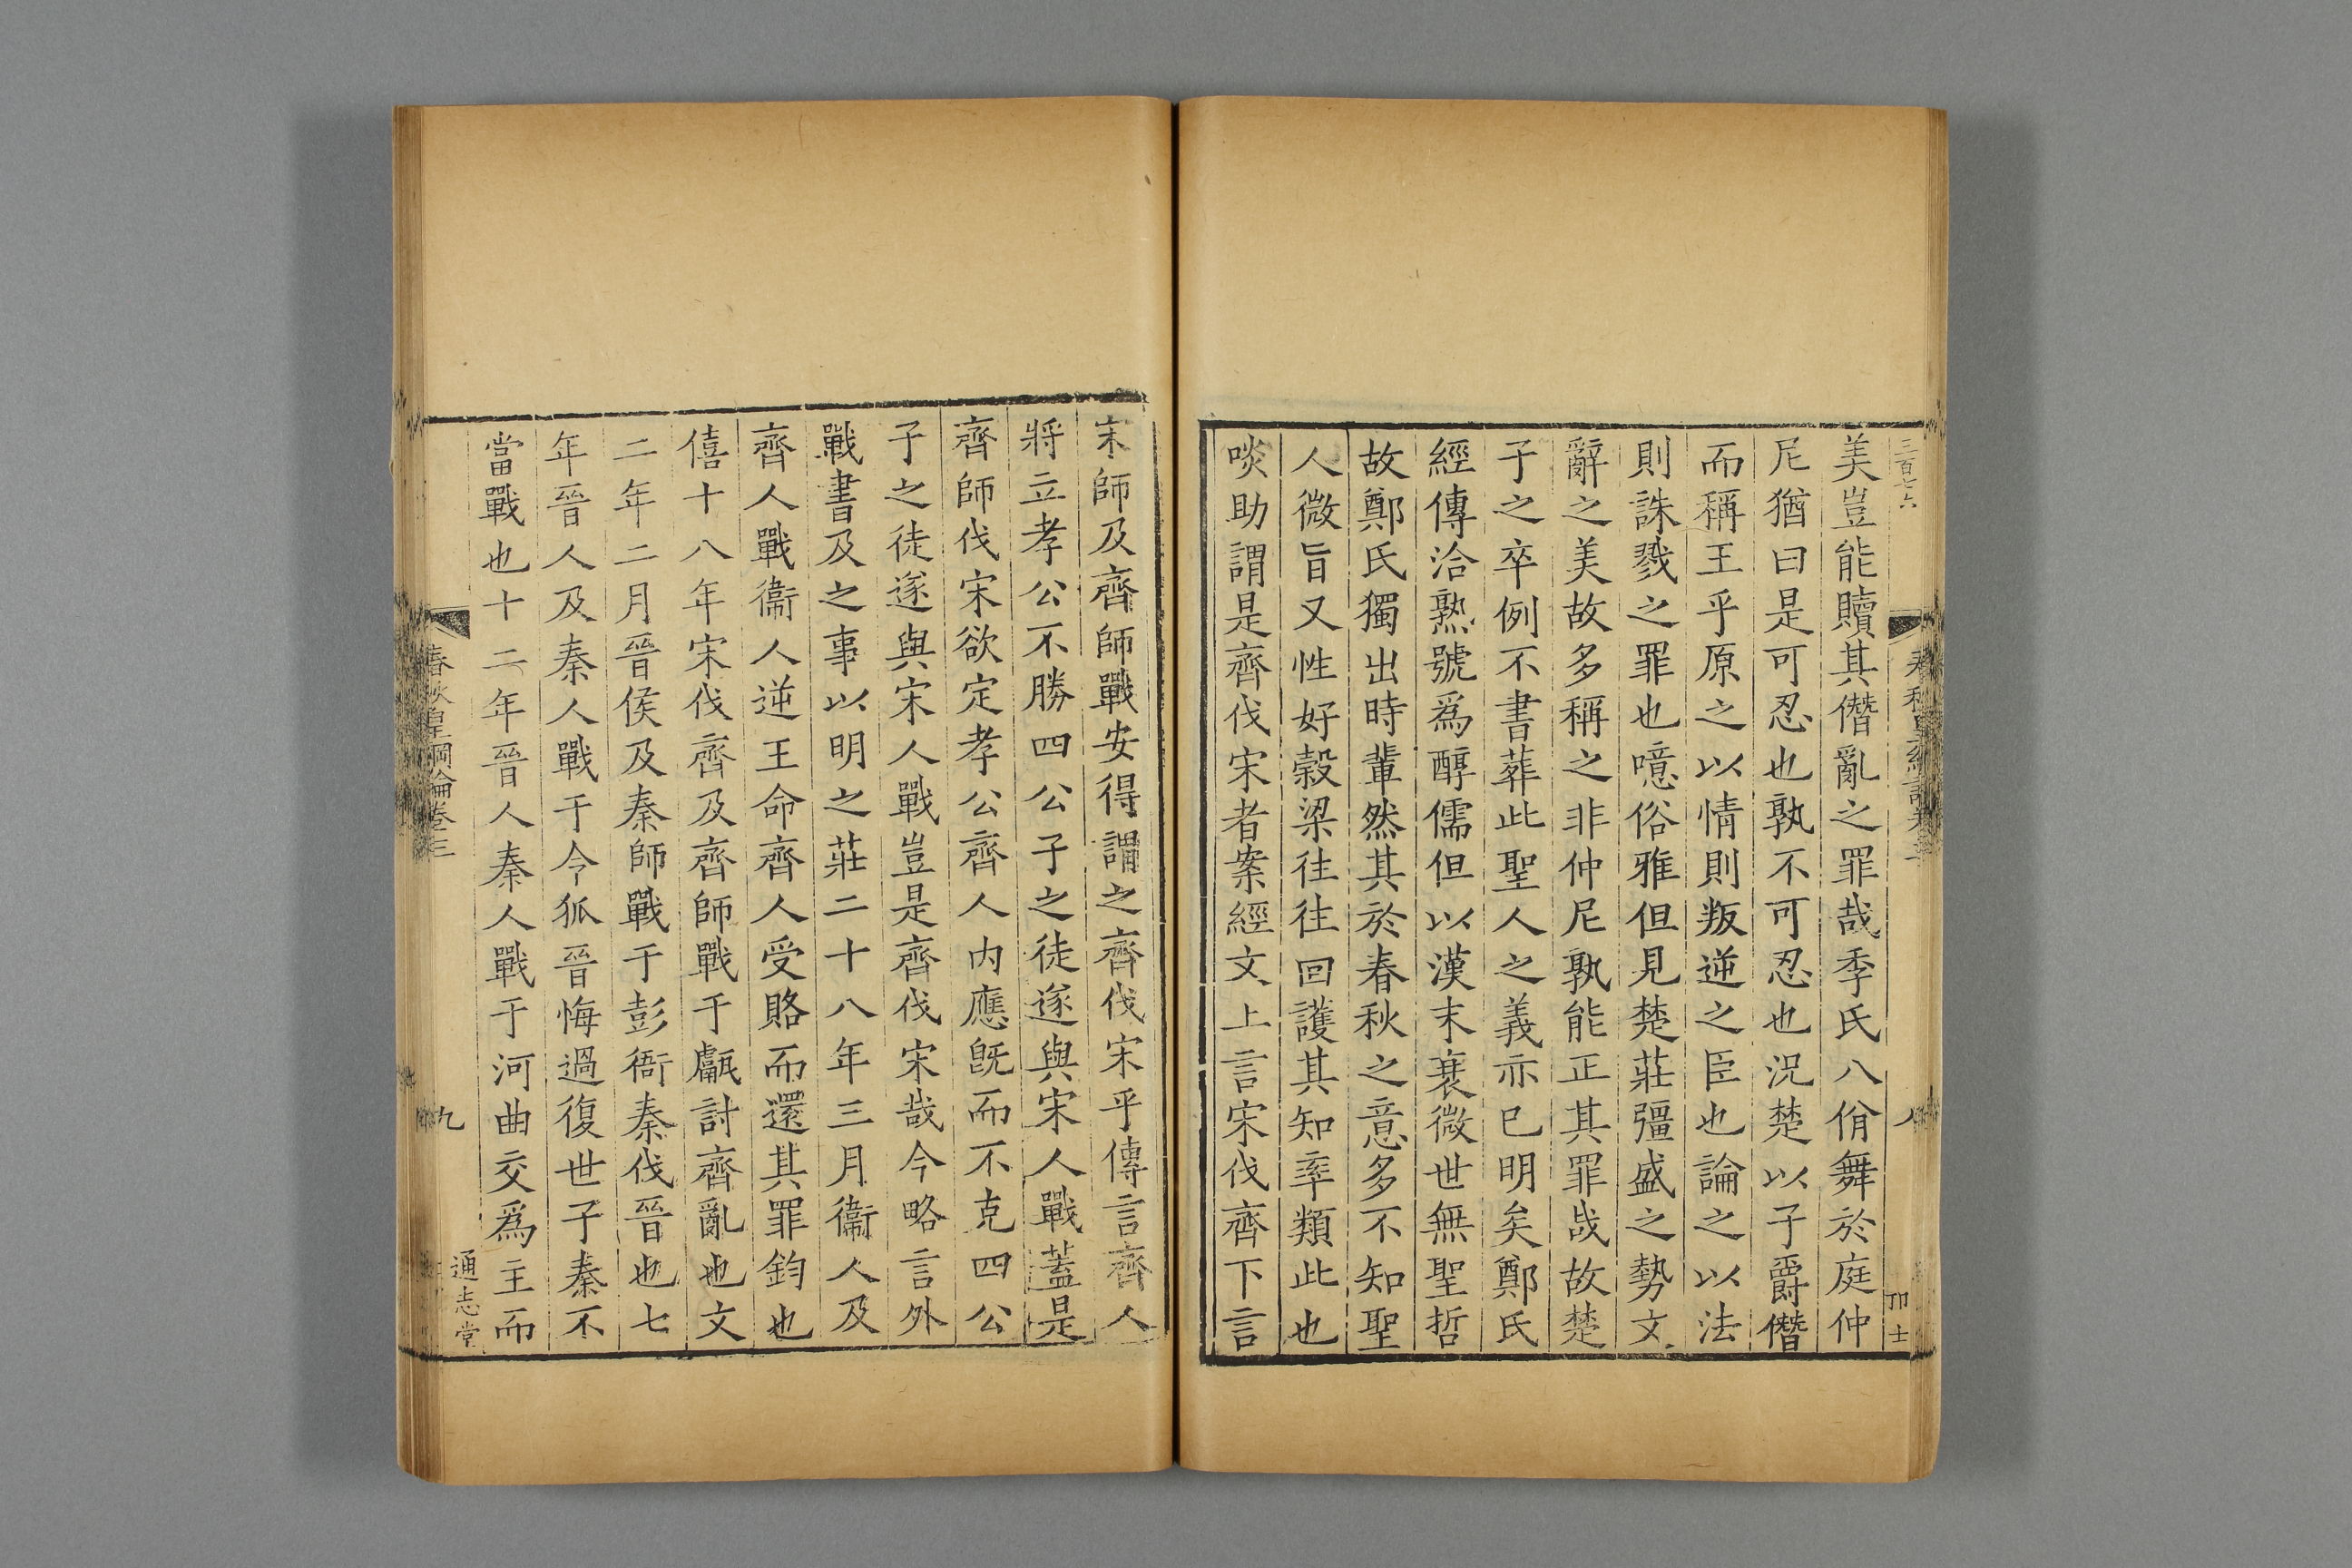 三百七六
美豈能贖其僭亂之罪哉季氏八佾舞於庭仲
尼猶曰是可忍也孰不可忍也況楚以子爵僭
而稱王乎原之以情則叛逆之臣也論之以法
則誅戮之罪也噫俗雅但見楚莊彊盛之勢文
辭之美故多稱之非仲尼孰能正其罪哉故楚
子之卒例不書葬此聖人之義亦已明矣鄭氏
經傳洽熟號爲醇儒但以漢末衰微世無聖哲
故鄭氏獨出時輩然其於春秋之意多不知聖
人微旨又性好穀梁往往回護其知率類此也
啖助謂是齊伐宋者案經文上言宋伐齊下言
宋師及齊師戰安得謂之齊伐宋乎傳言齊人
將立孝公不勝四公子之徒遂與宋人戰蓋是
齊師伐宋欲定孝公齊人内應旣而不克四公
子之徒遂與宋人戰豈是齊伐宋哉今略言外
戰書及之事以明之莊二十八年三月衞人及
齊人戰衞人逆王命齊人受賂而還其罪鈞也
僖十八年宋伐齊及齊師戰于甗討齊亂也文
二年二月晉侯及秦師戰于彭衙秦伐晉也七
年晉人及秦人戰于令狐晉悔過復世子秦不
當戰也十二年晉人秦人戰于河曲交爲主而
春秋皇綱論卷三
九
通志堂